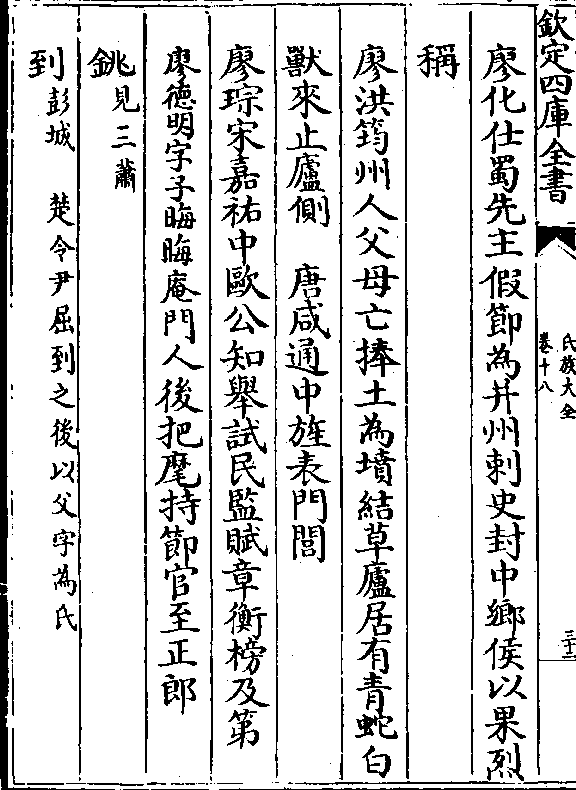 欽定四庫全書
氏族大全
卷十八
三十二
廖化仕蜀先主假節為并州刺史封中鄉侯以果烈
稱
廖洪筠州人父母亡捧土為墳結草廬居有青蛇白
獸來止廬側　唐咸通中旌表門閭
廖琮宋嘉祐中歐公知舉試民監賦章衡榜及第
廖德明字子晦晦庵門人後把麾持節官至正郎
銚見三蕭
到彭城　楚令尹屈到之後以父字為氏